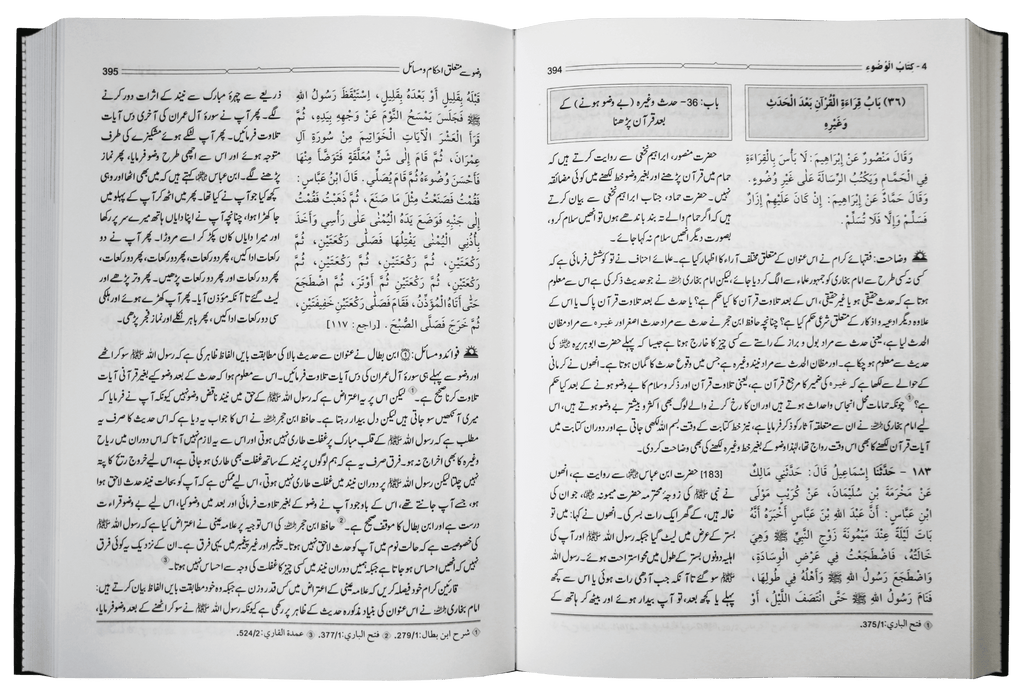 4 - كِتَابُ الْوُضُوءِ
394
(٣٦) بَابُ قِرَاءَةِ الْقُرْآنِ بَعْدَ الْحَدَثِ
وَغَيْرِهِ
باب: 36- حدث وغیرہ (بے وضو ہونے) کے
بعد قرآن پڑھنا
وَقَالَ مَنْصُورٌ عَنْ إِبْرَاهِيمَ: لَا بَأْسَ بِالْقِرَاءَةِ
فِي الْحَمَّامِ وَيَكْتُبُ الرِّسَالَةَ عَلَى غَيْرِ وُضُوءٍ.
وَقَالَ حَمَّادٌ عَنْ إِبْرَاهِيمَ: إِنْ كَانَ عَلَيْهِمْ إِزَارٌ
فَسَلِّمْ وَإِلَّا فَلَا تُسَلِّمْ.
حضرت منصور، ابراہیم نخعی سے روایت کرتے ہیں کہ
حمام میں قرآن پڑھنے اور بغیر وضو خط لکھنے میں کوئی مضائقہ
نہیں۔ حضرت حماد، جناب ابراہیم نخعی سے بیان کرتے ہیں
کہ اگر حمام والے تہ بند باندھے ہوں تو انھیں سلام کرو،
بصورت دیگر انھیں سلام نہ کہا جائے۔
وضاحت: فقہائے کرام نے اس عنوان کے متعلق مختلف آراء کا اظہار کیا ہے۔ علمائے احناف نے تو کوشش فرمائی ہے کہ
کسی نہ کسی طرح سے امام بخاری کو جمہور علماء سے الگ کر دیا جائے، لیکن امام بخاری نے جو حدیث ذکر کی ہے اس سے معلوم
ہوتا ہے کہ حدث حقیقی ہو یا غیر حقیقی، اس کے بعد تلاوت قرآن کا کیا حکم ہے؟ یا حدث کے بعد تلاوت قرآن پاک یا اس کے
علاوہ دیگر ادعیہ و اذکار کے متعلق شرعی حکم کیا ہے؟ چنانچہ حافظ ابن حجر نے حدث سے مراد حدث اصغر اور غیرہ سے مراد مظان
الحدث لیا ہے، یعنی حدث سے مراد بول و براز کے راستے سے کسی چیز کا خارج ہونا ہے جیسا کہ پہلے حضرت ابوہریرہ کی
حدیث سے معلوم ہو چکا ہے۔ اور مظان الحدث سے مراد نیند وغیرہ ہے جس میں وقوع حدث کا گمان ہوتا ہے۔ اور انھوں نے کرمانی
کے حوالے سے لکھا ہے کہ غیرہ کی ضمیر کا مرجع قرآن ہے، یعنی تلاوت قرآن اور ذکر و سلام کا بے وضو ہونے کے بعد کیا حکم
ہے؟① چونکہ حمامات محل انجاس و احداث ہوتے ہیں اور ان کا رخ کرنے والے لوگ بھی اکثر و بیشتر بے وضو ہوتے ہیں، اس
لیے امام بخاری نے ان سے متعلقہ آثار کو ذکر فرمایا ہے، نیز خط کتابت کے وقت بسم اللہ لکھی جاتی ہے اور دوران کتابت میں
آیات قرآن لکھنے کا بھی اس وقت رواج تھا، لہٰذا وضو کے بغیر خط وغیرہ لکھنے کی بھی وضاحت کر دی۔
١٨٣ - حَدَّثَنَا إِسْمَاعِيلُ قَالَ: حَدَّثَنِي مَالِكٌ
عَنْ مَخْرَمَةَ بْنِ سُلَيْمَانَ، عَنْ كُرَيْبٍ مَوْلَى
ابْنِ عَبَّاسٍ: أَنَّ عَبْدَ اللهِ بْنَ عَبَّاسٍ أَخْبَرَهُ أَنَّهُ
بَاتَ لَيْلَةً عِنْدَ مَيْمُونَةَ زَوْجِ النَّبِيِّ ﷺ وَهِيَ
خَالَتُهُ، فَاضْطَجَعْتُ فِي عَرْضِ الْوِسَادَةِ،
وَاضْطَجَعَ رَسُولُ اللهِ ﷺ وَأَهْلُهُ فِي طُولِهَا،
فَنَامَ رَسُولُ اللهِ ﷺ حَتَّى انْتَصَفَ اللَّيْلُ، أَوْ
[183] حضرت ابن عباس سے روایت ہے، انھوں
نے نبی ﷺ کی زوجۂ محترمہ حضرت میمونہ، جو ان کی
خالہ ہیں، کے گھر ایک رات بسر کی۔ انھوں نے کہا: میں تو
بستر کے عرض میں لیٹ گیا جبکہ رسول اللہ ﷺ اور آپ کی
اہلیہ دونوں بستر کے طول میں محو استراحت ہوئے۔ رسول اللہ
ﷺ سو گئے تا آنکہ جب آدھی رات ہوئی یا اس سے کچھ
پہلے یا کچھ بعد، تو آپ بیدار ہوئے اور بیٹھ کر ہاتھ کے
① فتح الباري: 375/1.
وضو سے متعلق احکام و مسائل
395
قَبْلَهُ بِقَلِيلٍ أَوْ بَعْدَهُ بِقَلِيلٍ، اِسْتَيْقَظَ رَسُولُ اللهِ
ﷺ فَجَلَسَ يَمْسَحُ النَّوْمَ عَنْ وَجْهِهِ بِيَدِهِ، ثُمَّ
قَرَأَ الْعَشْرَ الْآيَاتِ الْخَوَاتِيمَ مِنْ سُورَةِ آلِ
عِمْرَانَ، ثُمَّ قَامَ إِلَى شَنٍّ مُعَلَّقَةٍ فَتَوَضَّأَ مِنْهَا
فَأَحْسَنَ وُضُوءَهُ ثُمَّ قَامَ يُصَلِّي. قَالَ ابْنُ عَبَّاسٍ:
فَقُمْتُ فَصَنَعْتُ مِثْلَ مَا صَنَعَ، ثُمَّ ذَهَبْتُ فَقُمْتُ
إِلَى جَنْبِهِ فَوَضَعَ يَدَهُ الْيُمْنَى عَلَى رَأْسِي وَأَخَذَ
بِأُذُنِي الْيُمْنَى يَفْتِلُهَا فَصَلَّى رَكْعَتَيْنِ، ثُمَّ
رَكْعَتَيْنِ، ثُمَّ رَكْعَتَيْنِ، ثُمَّ رَكْعَتَيْنِ، ثُمَّ
رَكْعَتَيْنِ، ثُمَّ رَكْعَتَيْنِ ثُمَّ أَوْتَرَ، ثُمَّ اضْطَجَعَ
حَتَّى أَتَاهُ الْمُؤَذِّنُ، فَقَامَ فَصَلَّى رَكْعَتَيْنِ خَفِيفَتَيْنِ،
ثُمَّ خَرَجَ فَصَلَّى الصُّبْحَ. [راجع: ١١٧]
ذریعے سے چہرۂ مبارک سے نیند کے اثرات دور کرنے
لگے۔ پھر آپ نے سورۂ آل عمران کی آخری دس آیات
تلاوت فرمائیں۔ پھر آپ لٹکے ہوئے مشکیزے کی طرف
متوجہ ہوئے اور اس سے اچھی طرح وضو فرمایا، پھر نماز
پڑھنے لگے۔ ابن عباس کہتے ہیں کہ میں بھی اٹھا اور وہی
کچھ کیا جو آپ نے کیا تھا۔ پھر میں اٹھ کر آپ کے پہلو میں
جا کھڑا ہوا، چنانچہ آپ نے اپنا دایاں ہاتھ میرے سر پر رکھا
اور میرا دایاں کان پکڑ کر اسے مروڑا۔ پھر آپ نے دو
رکعات ادا کیں، پھر دو رکعات، پھر دو رکعات، پھر دو رکعات،
پھر دو رکعات اور پھر دو رکعات پڑھیں۔ پھر وتر پڑھے اور
لیٹ گئے تا آنکہ مؤذن آیا۔ پھر آپ کھڑے ہوئے اور ہلکی
سی دو رکعات ادا کیں، پھر باہر نکلے اور نماز فجر پڑھی۔
فوائد و مسائل: ① ابن بطال نے عنوان سے حدیث بالا کی مطابقت بایں الفاظ ظاہر کی ہے کہ رسول اللہ ﷺ سو کر اٹھے
اور وضو سے پہلے ہی سورۂ آل عمران کی دس آیات تلاوت فرمائیں۔ اس سے معلوم ہوا کہ حدث کے بعد وضو کیے بغیر قرآنی آیات
تلاوت کرنا صحیح ہے۔① لیکن اس پر یہ اعتراض ہے کہ رسول اللہ ﷺ کے حق میں نیند ناقض وضو نہیں کیونکہ آپ نے فرمایا کہ
میری آنکھیں سو جاتی ہیں لیکن دل بیدار رہتا ہے۔ حافظ ابن حجر نے اس کا جواب یہ دیا ہے کہ اس حدیث کا صرف یہ
مطلب ہے کہ رسول اللہ ﷺ کے قلب مبارک پر غفلت طاری نہیں ہوتی اور اس سے یہ لازم نہیں آتا کہ اس دوران میں ریاح
وغیرہ کا بھی اخراج نہ ہو۔ فرق صرف یہ ہے کہ ہم لوگوں پر نیند کے ساتھ غفلت بھی طاری ہو جاتی ہے، اس لیے خروج ریح کا پتہ
نہیں چلتا لیکن رسول اللہ ﷺ پر دوران نیند میں غفلت طاری نہیں ہوتی، اس لیے ممکن ہے کہ آپ کو بحالت نیند حدث لاحق ہوا
ہو، جسے آپ جانتے تھے، اس کے باوجود آپ نے وضو کے بغیر تلاوت فرمائی اور بعد میں وضو کیا، اس لیے بے وضو قراءت
درست ہے اور ابن بطال کا موقف صحیح ہے۔② حافظ ابن حجر کی اس توجیہ پر علامہ عینی نے اعتراض کیا ہے کہ رسول اللہ ﷺ
کی خصوصیت ہے کہ حالت نوم میں آپ کو حدث لاحق نہیں ہوتا۔ پیغمبر اور غیر پیغمبر میں یہی فرق ہے۔ ان کے نزدیک یہ کوئی فرق
نہیں کہ انھیں احساس ہو جاتا ہے جبکہ ہمیں دوران نیند میں کسی چیز کا غفلت کی وجہ سے احساس نہیں ہوتا۔③
قارئین کرام خود فیصلہ کریں کہ علامہ عینی کے اعتراض میں کس قدر وزن ہے جبکہ وہ خود مطابقت بایں الفاظ بیان کرتے ہیں:
امام بخاری نے اس عنوان کی بنیاد مذکورہ حدیث کے ظاہر پر رکھی ہے کیونکہ رسول اللہ ﷺ نے سو کر اٹھنے کے بعد وضو فرمایا،
① شرح ابن بطال: 279/1. ② فتح الباري: 377/1. ③ عمدة القاري: 524/2.